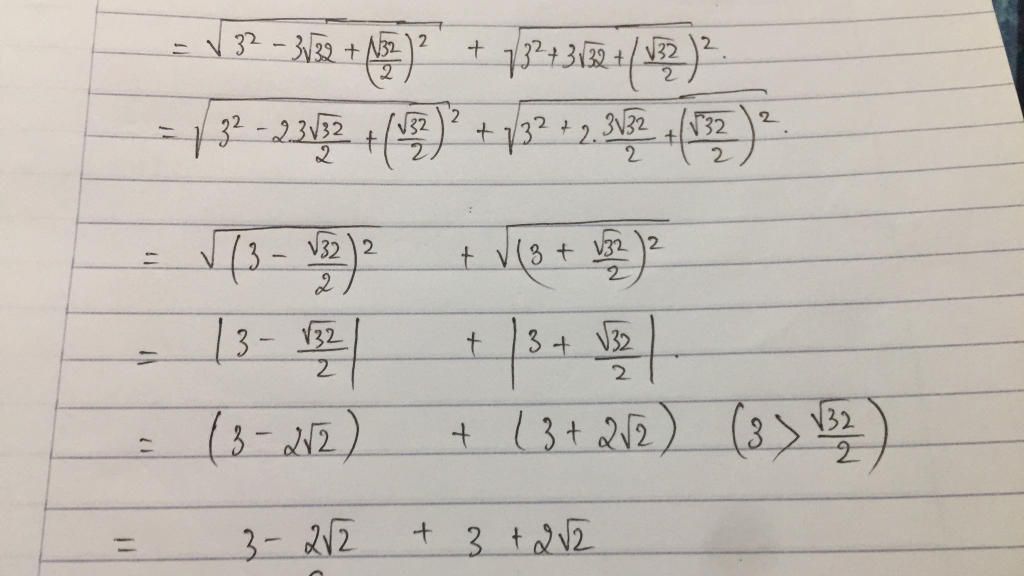 = √(3² - 3√32 + (√32/2)²) + √(3² + 3√32 + (√32/2)²).
= √(3² - 2.3√32/2 + (√32/2)²) + √(3² + 2.3√32/2 + (√32/2)²).
= √((3 - √32/2)²) + √((3 + √32/2)²)
= |3 - √32/2| + |3 + √32/2|.
= (3 - 2√2) + (3 + 2√2) (3 > √32/2)
= 3 - 2√2 + 3 + 2√2